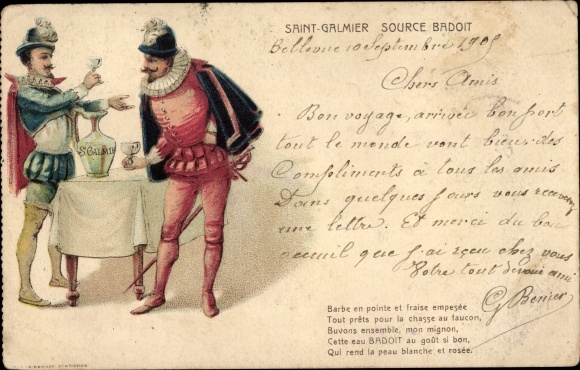 SAINT-GALMIER SOURCE BADOIT
Bellevue 10 Septembre 1905
Chers Amis
Bon voyage, arrivée bon port
tout le monde vont bien. des
Compliments à tous les amis
Dans quelques jours vous recevrez
une lettre. Et merci du bon
accueil que j'ai reçu chez vous
Votre tout dévoué ami
G Bernier
St GALMIER
Barbe en pointe et fraise empesée
Tout prêts pour la chasse au faucon,
Buvons ensemble, mon mignon,
Cette eau BADOIT au goût si bon,
Qui rend la peau blanche et rosée.